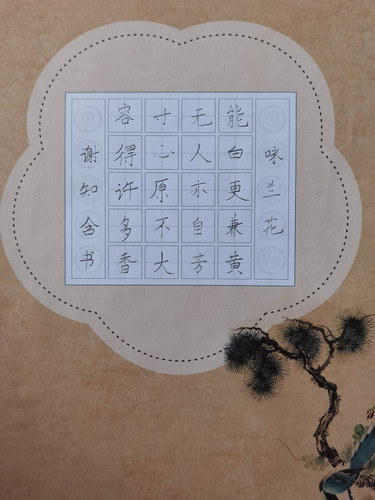 咏兰花
能白更兼黄
无人亦自芳
寸心原不大
容得许多香
谢知含书